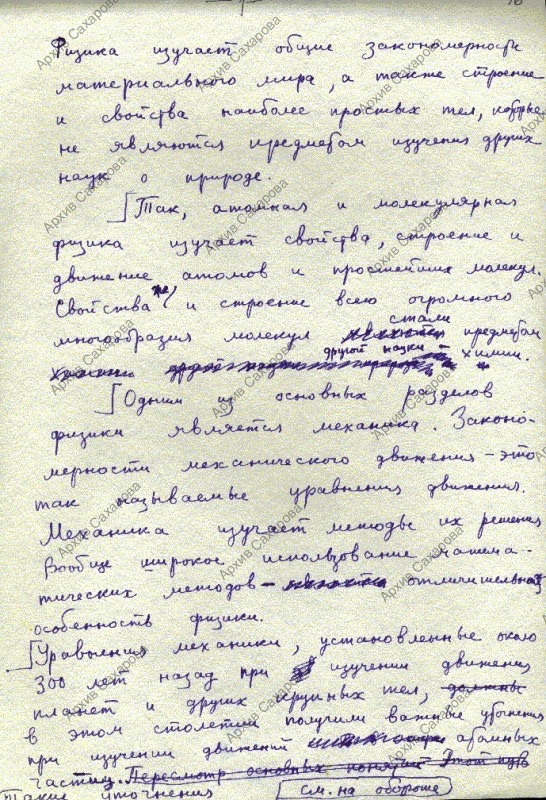 Физика изучает общие закономерности
материального мира, а также строение
и свойства наиболее простых тел, которые
не являются предметом изучения других
наук о природе.
Так, атомная и молекулярная
физика изучает свойства, строение и
движение атомов и простейших молекул.
Свойства же и строение всего огромного
многообразия молекул стали предметом
другой науки – химии.
Одним из основных разделов
физики является механика. Законо-
мерности механического движения – это
так называемые уравнения движения.
Механика изучает методы их решения
Вообще широкое использование матема-
тических методов – отличительная
особенность физики.
Уравнения механики, установленные около
300 лет назад при изучении движения
планет и других крупных тел, должны
в этом столетии получили важные уточнения
при изучении движений атомных
частиц. Пересмотр основных понятий Этот
Такие уточнения
см. на обороте
Архив Сахарова